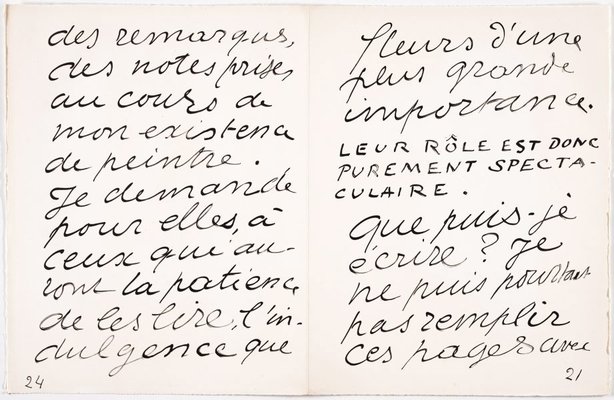 des remarques,
des notes prises
au cours de
mon existence
de peintre.
Je demande
pour elles, à
ceux qui au-
ront la patience
de les lire, l'in-
dulgence que
24
fleurs d'une
plus grande
importance.
LEUR RÔLE EST DONC
PUREMENT SPECTA-
CULAIRE.
Que puis-je
écrire? Je
ne puis pourtant
pas remplir
ces pages avec
21